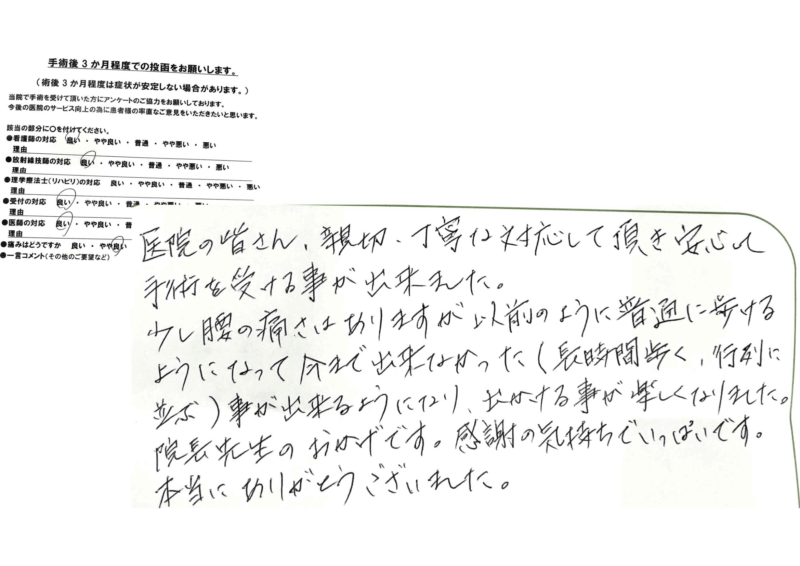 手術後３か月程度での投函をお願いします。
（術後３か月程度は症状が安定しない場合があります。）
当院で手術を受けて頂いた方にアンケートのご協力をお願いしております。
今後の医院のサービス向上の為に患者様の率直なご意見をいただきたいと思います。
該当の部分に○を付けてください。
●看護師の対応　良い ・ やや良い ・ 普通 ・ やや悪い ・ 悪い
理由
●放射線技師の対応　良い ・ やや良い ・ 普通 ・ やや悪い ・ 悪い
理由
●理学療法士(リハビリ)の対応　良い ・ やや良い ・ 普通 ・ やや悪い ・ 悪い
理由
●受付の対応　良い ・ やや良い ・ 普通 ・ やや悪い ・ 悪い
理由
●医師の対応　良い ・ やや良い ・ 普
理由
●痛みはどうですか　良い ・ やや良い
●一言コメント(その他のご要望など)
医院の皆さん、親切、丁寧な対応して頂き安心して
手術を受ける事が出来ました。
少し腰の痛さはありますが以前のように普通に歩ける
ようになって今まで出来なかった(長時間歩く、行列に
並ぶ)事が出来るようになり、出かける事が楽しくなりました。
院長先生のおかげです。感謝の気持ちでいっぱいです。
本当にありがとうございました。